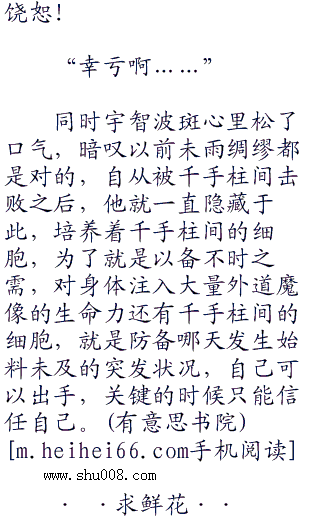 饶恕！
“幸亏啊……”
同时宇智波斑心里松了
口气，暗叹以前未雨绸缪都
是对的，自从被千手柱间击
败之后，他就一直隐藏于
此，培养着千手柱间的细
胞，为了就是以备不时之
需，对身体注入大量外道魔
像的生命力还有千手柱间的
细胞，就是防备哪天发生始
料未及的突发状况，自己可
以出手，关键的时候只能信
任自己。(有意思书院)
[m.heihei66.com手机阅读]
www.shu008.com
· ·求鲜花· ·